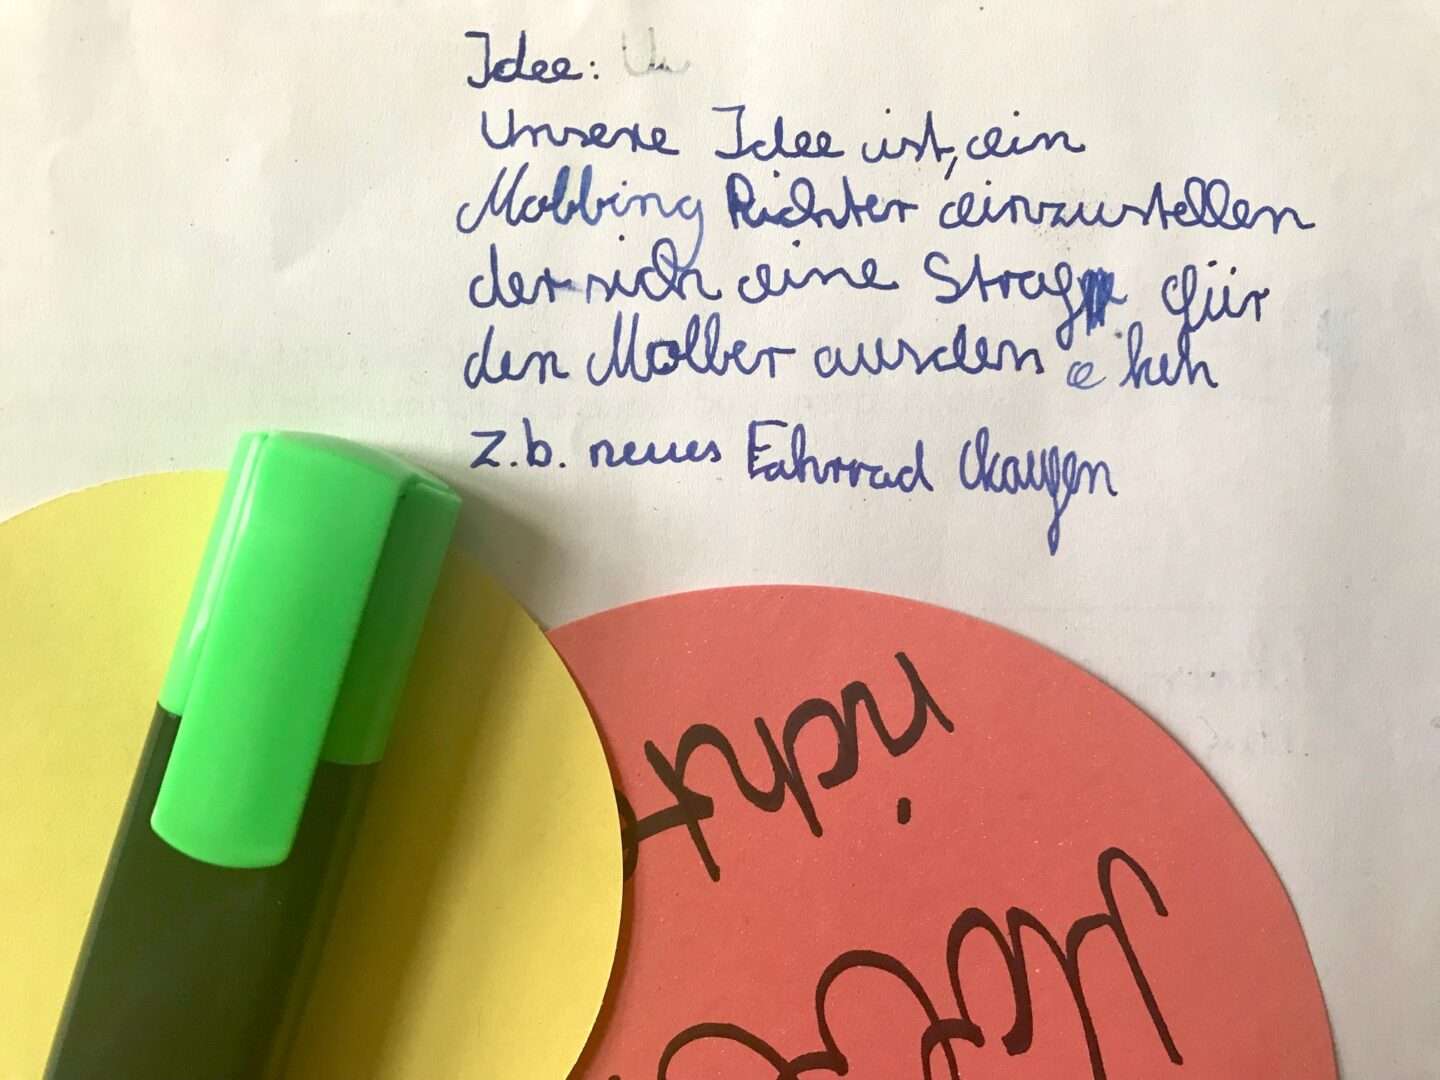 Idee:
Unsere Idee ist, ein
Mobbing Richter einzustellen
der sich eine Straf für
den Mobber ausden ken
z.b. neues Fahrrad kaufen
nicht